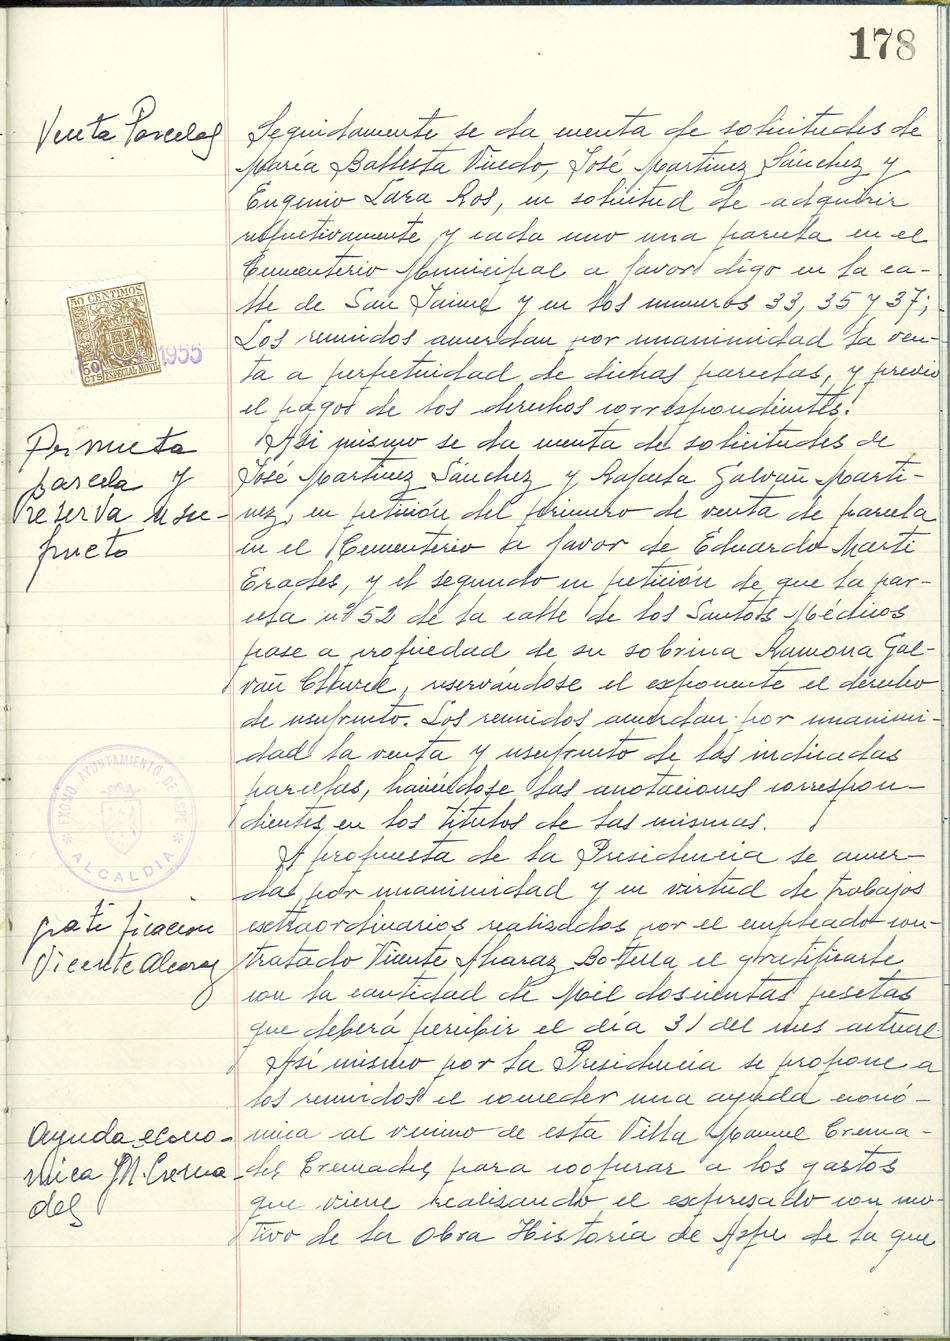 178
Venta Parcelas
Seguidamente se da cuenta de solicitudes de
María Ballesta Vicedo, José Martinez Sánchez y
Eugenio Lara Ros, en solicitud de adquirir
respectivamente y cada uno una parcela en el
Cementerio Municipal a favor digo en la ca-
lle de San Jaime y en los numeros 33, 35 y 37;
Los reunidos acuerdan por unanimidad la ven-
ta a perpetuidad de dichas parcelas, y previo
el pago de los derechos correspondientes.
50 CENTIMOS
50 CTS ESPECIAL MOVIL
1955
Permuta
parcela y
reserva usu-
fructo
Asi mismo se da cuenta de solicitudes de
José Martinez Sánchez y Rafaela Galvañ Marti-
nez, en petición del primero de venta de parcela
en el Cementerio a favor de Eduardo Marti
Erades, y el segundo en petición de que la par-
cela nº 52 de la calle de los Santos Médicos
pase a propiedad de su sobrina Ramona Gal-
vañ Clavel, reservándose el exponente el derecho
de usufructo. Los reunidos acuerdan por unanimi-
dad la venta y usufructo de las indicadas
parcelas, haciéndose las anotaciones correspon-
dientes en los titulos de las mismas.
EXCMO. AYUNTAMIENTO DE ASPE
* ALCALDIA *
gratificación
Vicente Alcaraz
A propuesta de la Presidencia se acuer-
da por unanimidad y en virtud de trabajos
extraordinarios realizados por el empleado con-
tratado Vicente Alcaraz Botella el gratificarle
con la cantidad de Mil doscientas pesetas
que deberá percibir el día 31 del mes actual
Ayuda econo-
mica M. Crema-
des
Así mismo por la Presidencia se propone a
los reunidos el conceder una ayuda econó-
mica al vecino de esta Villa Manuel Crema-
des Cremades, para cooperar a los gastos
que viene realizando el expresado con mo-
tivo de la Obra Historia de Aspe de la que